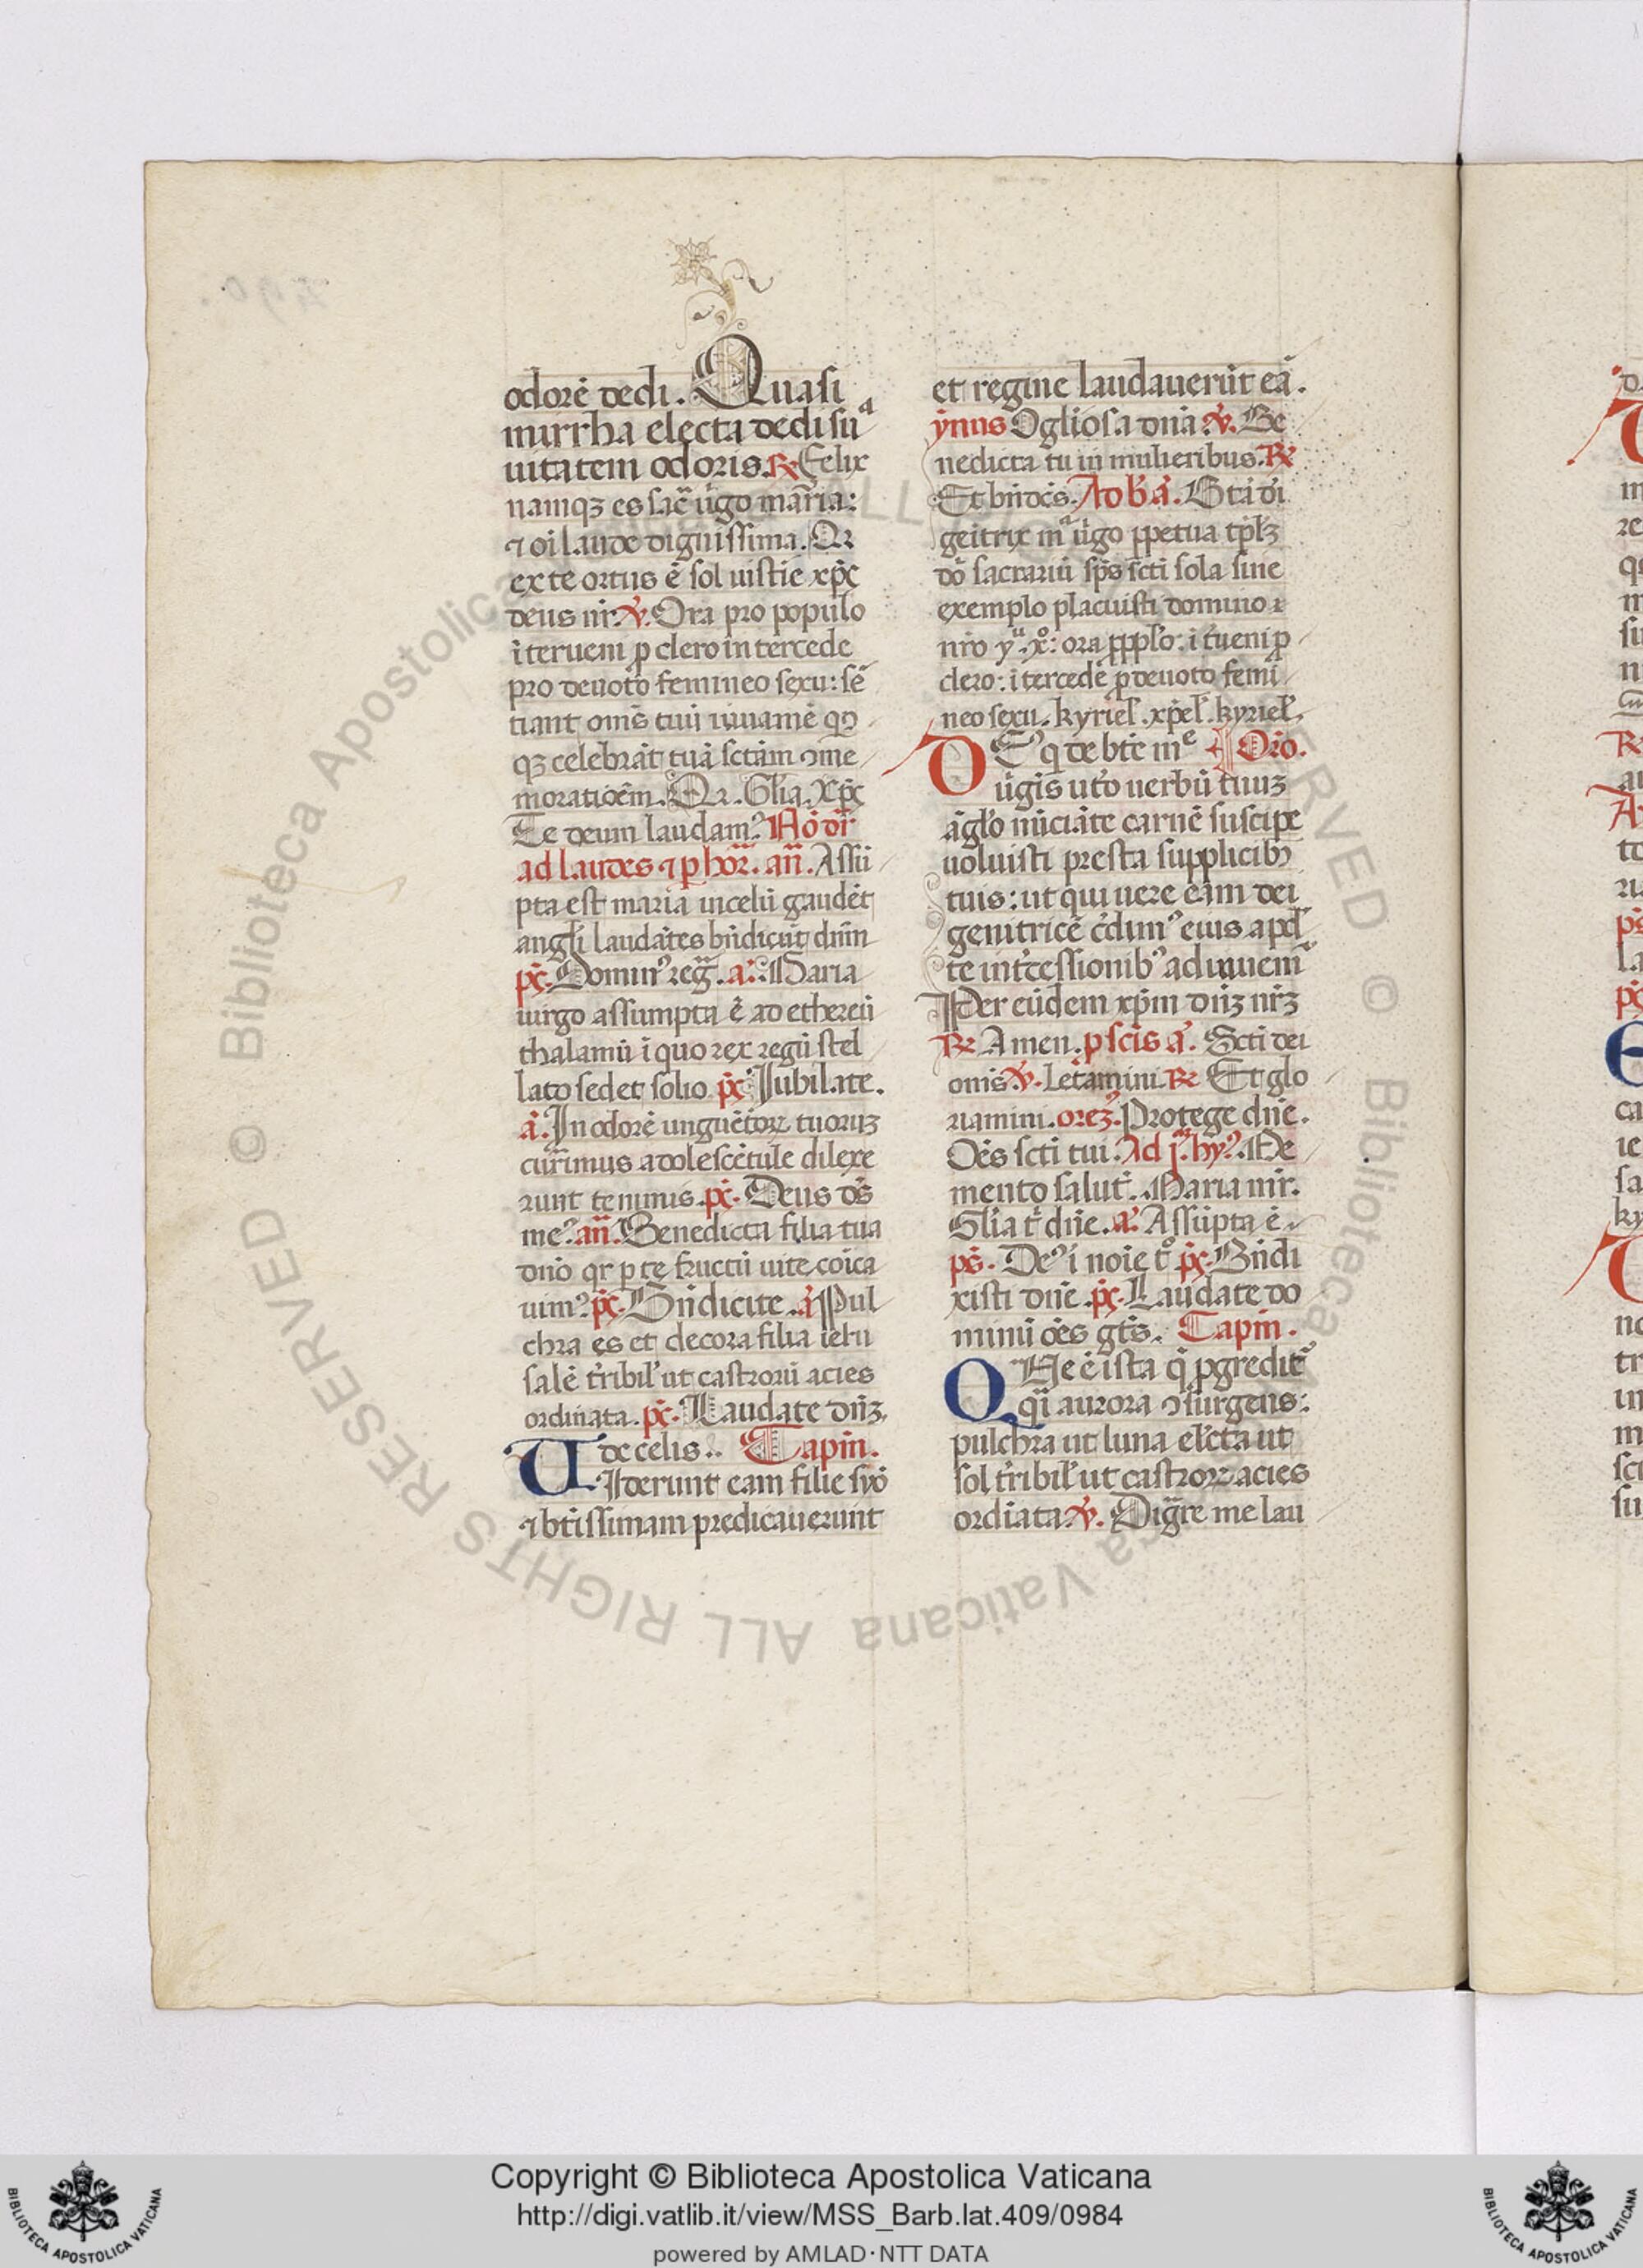 odorē dedi. Quasi
mirrha electa dedi suᵃ
uitatem odoris. ℟ Felix
namqꝫ es sac̄ uͥgo mar̄ia:
⁊ oī laude dignissima. Qꝛ
ex te ortus ē sol iusticie xp̄c
deus nr̄. ℣. Ora pro populo
īterueni ꝓ clero intercede
pro deuoto femineo sexu: sē
tiant om̄s tuū iuuamē qͦꝫ
qꝫ celebrāt tuā sctām ꝯme
moratiōem. Qꝛ. Glīa. Xp̄c
Te deum laudamꝰ. Ad dr̄
ad laudes ⁊ ꝑ hor̄. an̄. Assū
pta est maria in celū gaudēt
angłi laudātes bn̄dicūt dnm̄
ps̄. Dominꝰ reḡ. a. Maria
uirgo assumpta ē ad ethereū
thalamū ī quo rex regū stel
lato sedet solio. ps̄. Iubilate.
a. In odorē unguētoꝝ tuoruꝫ
currimus adolescētule dilexe
runt te nimis. ps̄. Deus dš
meꝰ. an̄. Benedicta filia tua
dn̄o qꝛ ꝑ te fructū uite cōīca
uimꝰ. ps̄. Bn̄dicite. a. Pul
chra es et decora filia ieru
salē tribił ut castrorū acies
ordinata. ps̄. Laudate dn̄ꝫ
de celis. Capłm.
UIderunt eam filie syō
⁊ btīssimam predicauerunt
et regine laudauerūt eā.
ynus O gliosa dn̄a. ℣. Be
nedicta tu in mulieribus. ℟
Et bn̄dc̄s. Ad b̄. a. Btā dī
geitrix mᵃ uͥgo ꝑpetua tp̄lꝫ
dō sacrariū sp̄s sctī sola sine
exemplo placuisti domino
nr̄o yᵘ. xͦ: ora ꝓ ppło: ī tueni ꝓ
clero: ītercede ꝓ deuoto femi
neo sexu. kyrieł. xp̄eł. kyrieł.
DEꝰ q̄ de btē mᵉ Oro.
uͥgis uto uerbū tuuꝫ
āgło nūciāte carnē suscipe
uoluisti presta supplicibꝫ
tuis: ut qui uere eam dei
genitricē c̄dimꝰ eius apd̄
te int̄cessionibꝰ adiuuemͬ
Per eūdem xp̄m dn̄ꝫ nr̄ꝫ
℟ Amen. ꝓ scīs a. Sctī dei
om̄s ℣. Letamini. ℟ Et glo
riamini. oreꝫ. Protege dn̄e.
Oēs sctī tui. Ad jᵃ. hyꝰ. Me
mento salut̄. Maria mr̄.
Glīa t̄ dn̄e. a. Assūpta ē
ps̄. Deꝰ ī noīe tͦ ps̄. Bn̄di
xisti dn̄e. ps̄. Laudate do
minū oēs gt̄s. Capłm.
QUe ē ista q̄ ꝓgredit̄
qͣi aurora ꝯsurgens:
pulchra ut luna elc̄ta ut
sol tribił ut castroꝝ acies
ordiata. ℣. Dig̃re me lau
Copyright © Biblioteca Apostolica Vaticana
http://digi.vatlib.it/view/MSS_Barb.lat.409/0984
powered by AMLAD·NTT DATA